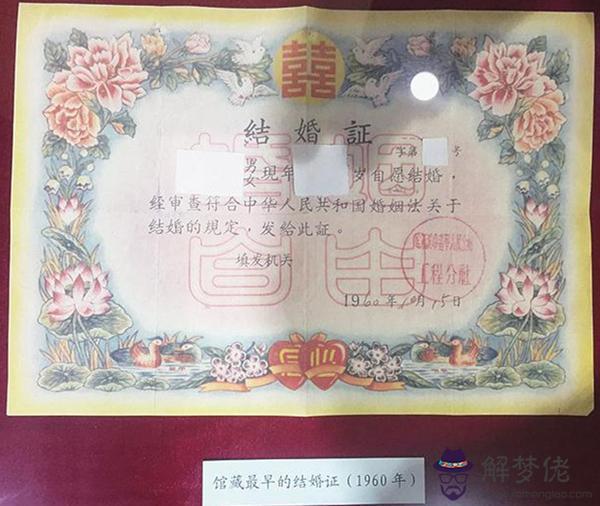 囍
結婚証
字第 号
男
女
现年 岁自愿结婚，
经审查符合中华人民共和国婚姻法关于
结婚的规定，发给此证。
填发机关
工程分社
1960年10月15日
婚姻
自由
馆藏最早的结婚证（1960年）
解梦佬